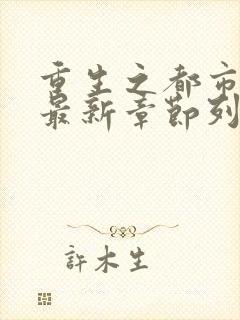 重生之都市
最新章節列
許木生